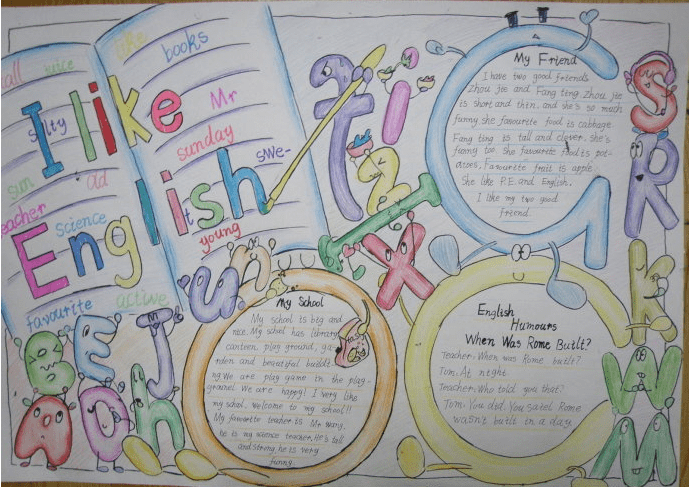 I like
English
call juice
like books
salty
Mr
sunday
sun ad
swe-
teacher
science
young
favourite active
My Friend
I have two good friends
Zhou jie and Fang ting Zhou jie
is short and thin. and she's so much
funny she favourite food is cabbage
Fang ting is tall and clever. she's
funny too. She favourite food is pot-
atoes, Favourite fruit is apple
She like P.E. and English.
I like my two good
friend.
My School
My school is big and
nice. My school has library
canteen play ground, ga-
rden and beautiful buildi-
ng We are play game in the play-
ground. We are happy! I very like
my school. welcome to my school!!
My favourite teacher is Mr Wang,
he is my science teacher. He's tall
and strong, he is very
funny.
English
Humours
When Was Rome Built?
Teacher: When was Rome built?
Tom: At night.
Teacher: Who told you that?
Tom: You did. You saied Rome
wasn't built in a day
t i
z
x
S
R
k
W
M
B E J
A O h
u n